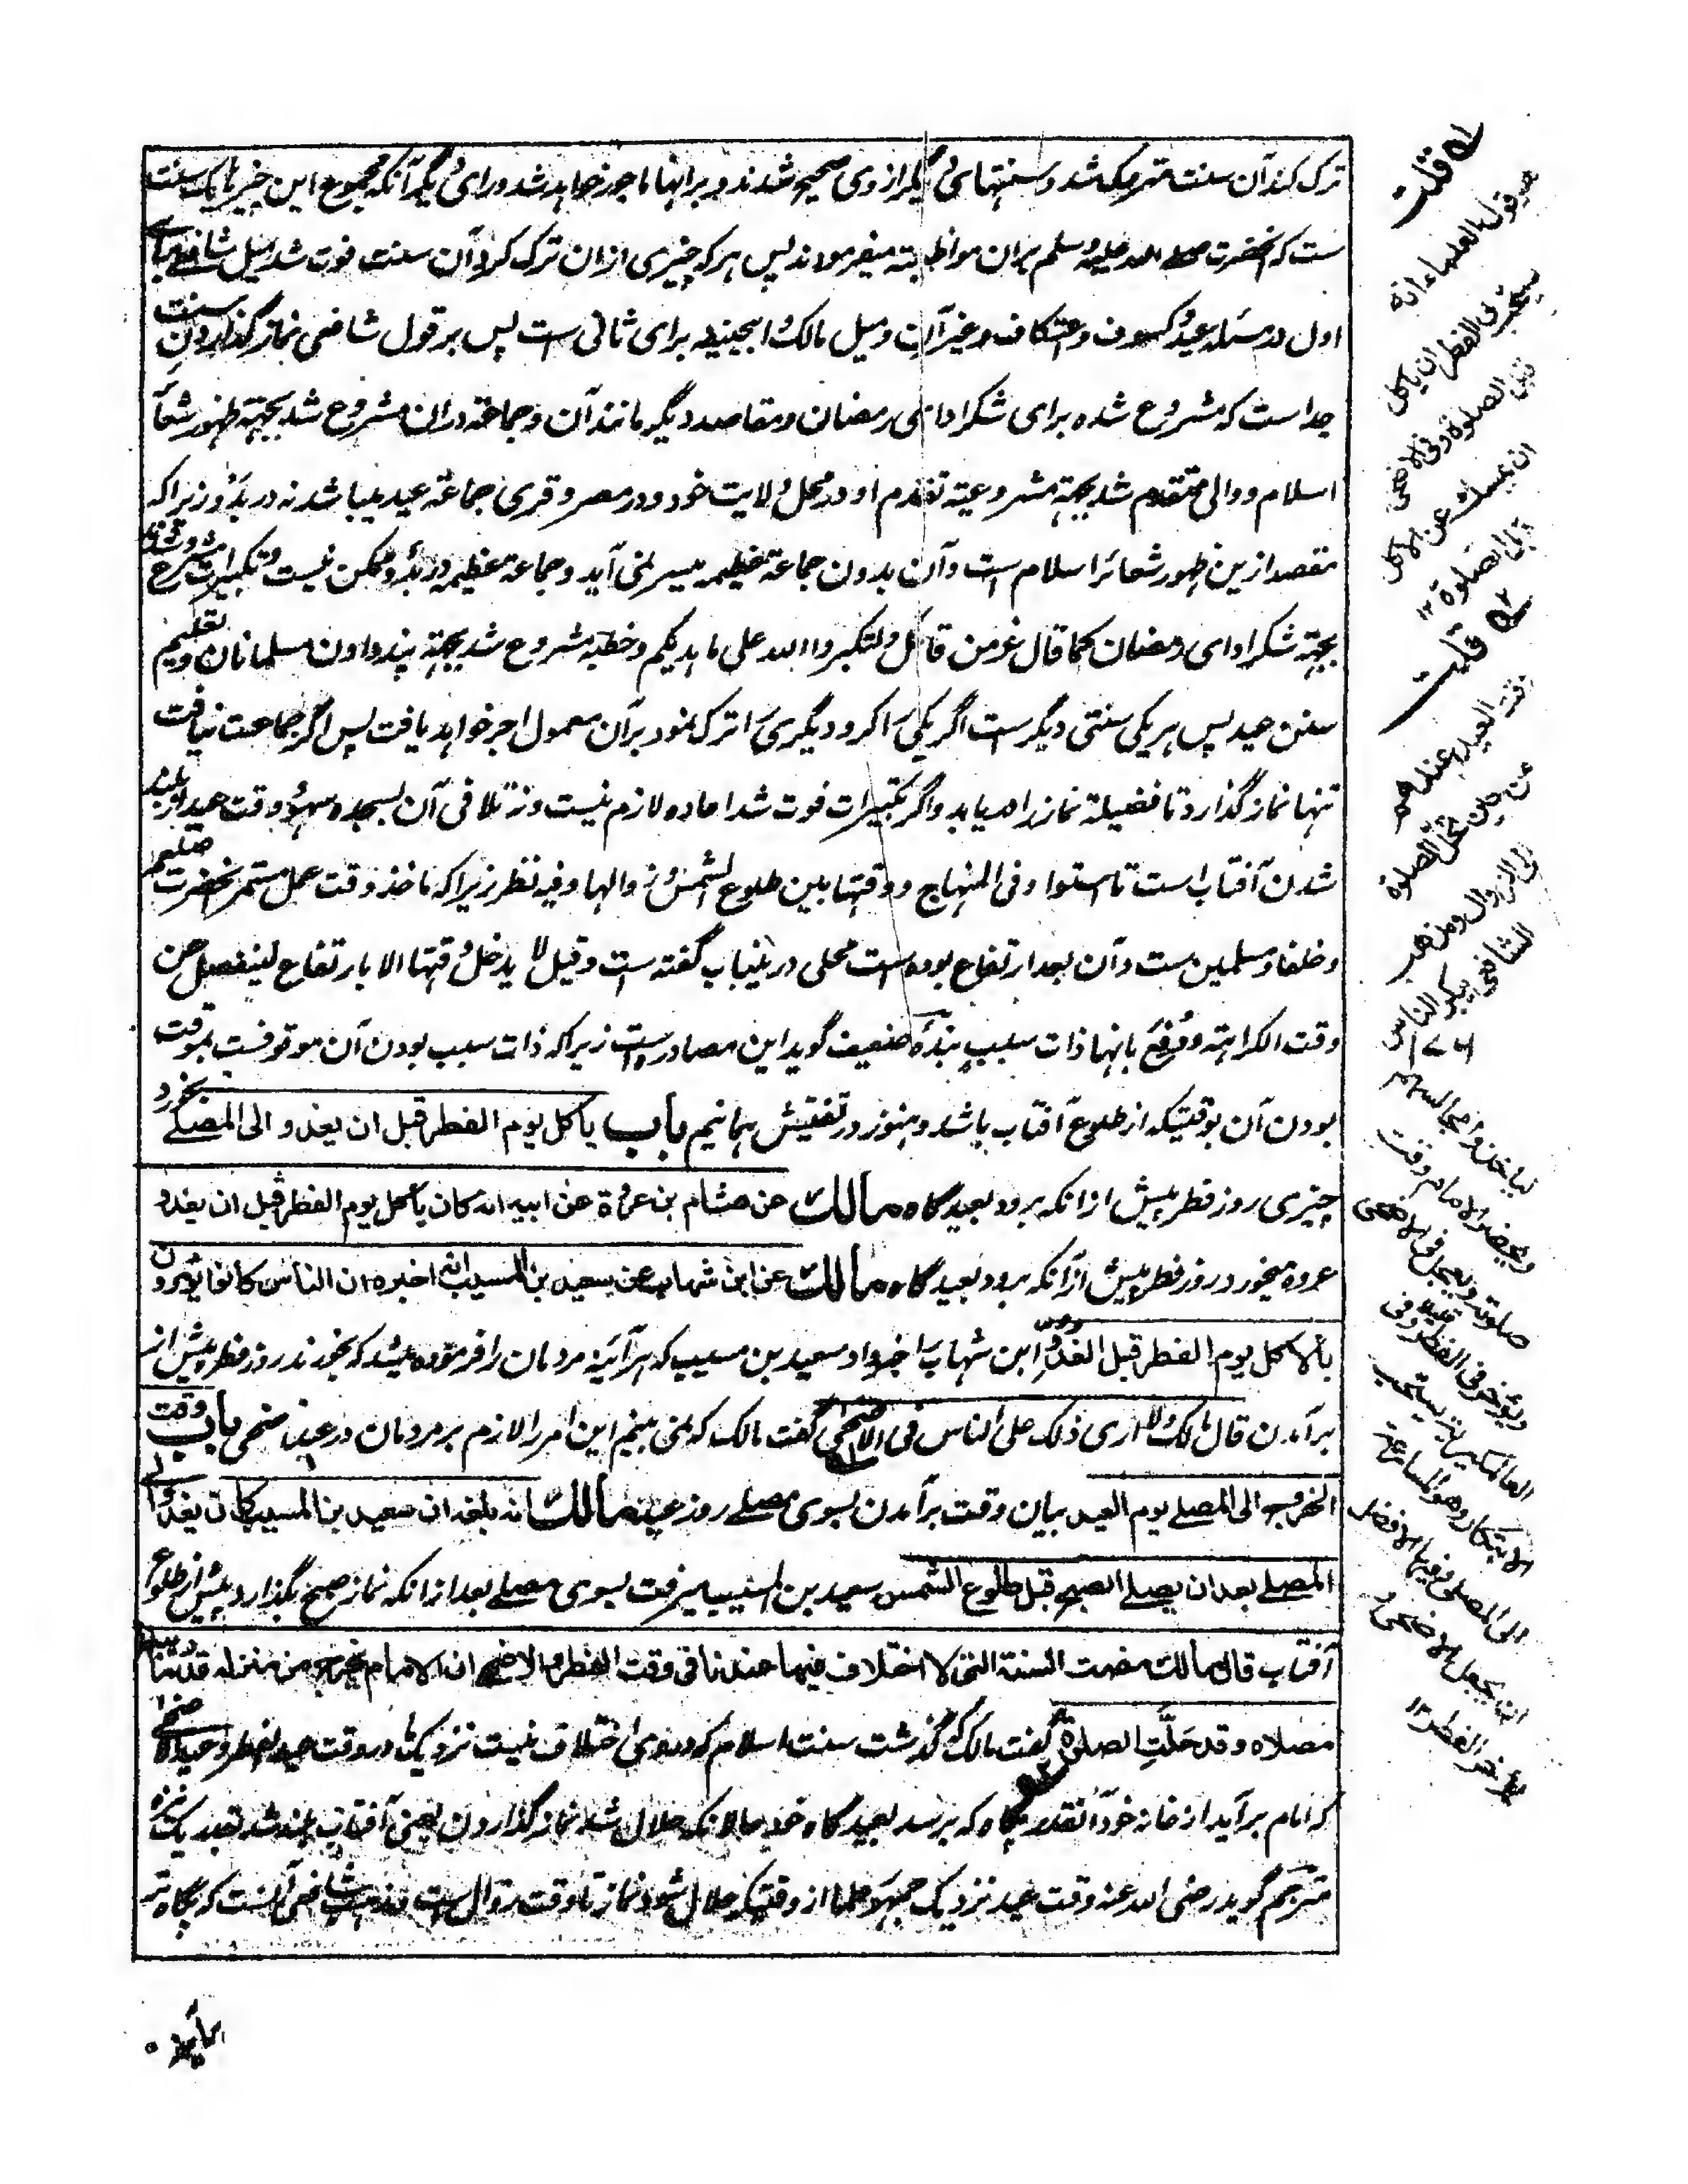 ترک کند آن سنت متروک شد و سنتهای دیگر از وی صحیح شدند و برانها ماجور خواهد شد و رای دیگر آنکه مجموع این چیزها یک سنت
ست که آنحضرت صلے الله علیه وسلم بران مواظبته میفرمودند پس هر که چیزی ازان ترک کرد آن سنت فوت شد میل شافعے برای
اول در مسئله عید و کسوف و اعتکاف و غیر آن و میل مالک و ابیحنیفه برای ثانی ست پس بر قول شافعی نماز گذاردن سنت
جداست که مشروع شده برای شکر ادای رمضان و مقاصد دیگر مانند آن و جماعة دران مشروع شد بجهة ظهور شعائر
اسلام و والی متقدم شد بجهة مشروعیة تقدم او در محل ولایت خود و در مصر و قری جماعة عید میباشد نه در بدو زیراکه
مقصد ازین ظهور شعائر اسلام است و آن بدون جماعة عظیمه میسر نمی آید و جماعة عظیمه در بدو ممکن نیست و تکبیرات مشروع شد
بجهة شکر ادای رمضان کما قال عز من قائل ولتکبروا الله علی ما هدیکم و خطبه مشروع شد بجهة پند دادن مسلمانان و تعلیم
سنن عید پس هر یکی سنتی دیگر ست اگر یکی را کرد و دیگری را ترک نمود بر آن معمول اجر خواهد یافت پس اگر جماعت نیافت
تنها نماز گذارد تا فضیلة نماز را دریابد و اگر تکبیرات فوت شد اعاده لازم نیست و نه تلافی آن بسجده سهو و وقت عید از بلند
شدن آفتاب است تا استوا و فی المنهاج ووقتها بین طلوع الشمس وزوالها وفیه نظر زیراکه ماخذ وقت عمل مستمر آنحضرت صلعم
و خلفا و مسلمین ست و آن بعد ارتفاع بوده است محلی درینباب گفته ست وقیل لا یدخل وقتها الا بارتفاع لینفصل عن
وقت الکراهة ودفع بانها ذات سبب بنده ضعیف گوید این مصادره ست زیراکه ذات سبب بودن آن موقوفست بموقت
بودن آن بوقتیکه از طلوع آفتاب باشد و هنوز در تفتیش همانیم باب یاکل یوم الفطر قبل ان یغدو الی المصلے بخورد
چیزی روز فطر پیش ازانکه برود بعیدگاه مالک عن هشام بن عروة عن ابیه انه کان یاکل یوم الفطر قبل ان یغدو
عروه میخورد روز فطر پیش ازآنکه برود بعیدگاه مالک عن ابن شهاب عن سعید بن المسیب انه اخبره ان الناس کانوا یؤمرون
بالاکل یوم الفطر قبل الغدو ابن شهاب را خبر داد سعید بن مسیب که هر آئینه مردمان را فرموده میشد که بخورند روز فطر پیش از
برآمدن قال مالک ولا اری ذلک علی الناس فی الاضحی گفت مالک که نمی بینم این امر را لازم بر مردمان در عید اضحی باب وقت
الخروج الی المصلے یوم العید بیان وقت برآمدن بسوی مصلے روز عید مالک انه بلغه ان سعید بن المسیب کان یغدو الی
المصلے بعد ان یصلے الصبح قبل طلوع الشمس سعید بن المسیب میرفت بسوی مصلے بعد ازانکه نماز صبح بگذارد پیش از طلوع
آفتاب قال مالک مضت السنة التی لا اختلاف فیها عندنا فی وقت الفطر والاضحے ان الامام یخرج من منزله قدر ما یبلغ
مصلاه وقد حلت الصلوة گفت مالک گذشت سنت اسلام که در وی اختلاف نیست نزدیک ما در وقت عید فطر و عید اضحے
که امام برآید از خانه خود آنقدر پگاه که برسد بعیدگاه خود حالانکه حلال شد نماز گذاردن یعنی آفتاب بلند شد بقدر یک نیزه
مترجم گوید رضی الله عنه وقت عید نزدیک جمهور علما از وقتیکه حلال شود نماز تا وقت زوال ست و مذهب شافعی آنست که پگاه تر
برآید
له قلت
هو قول العلماء انه
یستحب فی الفطر ان یاکل
قبل الصلوة وفی الاضحی
ان یمسک عن الاکل
قبل الصلوة ١٢
٢ه قلت
وقت العید عندهم
من حین تحل الصلوة
الی الزوال ومذهب
الشافعی یبکر الناس
لیاخذوا مجالسهم
ویحضر الامام وقت
صلوته ویعجل فی الاضحی
ویؤخر فی الفطر قلیلا وفی
العالمگیریة یستحب
الابتکار وهو المسارعة
الی المصلی وفیها الافضل
ان یعجل الاضحی و
یؤخر الفطر ١٢